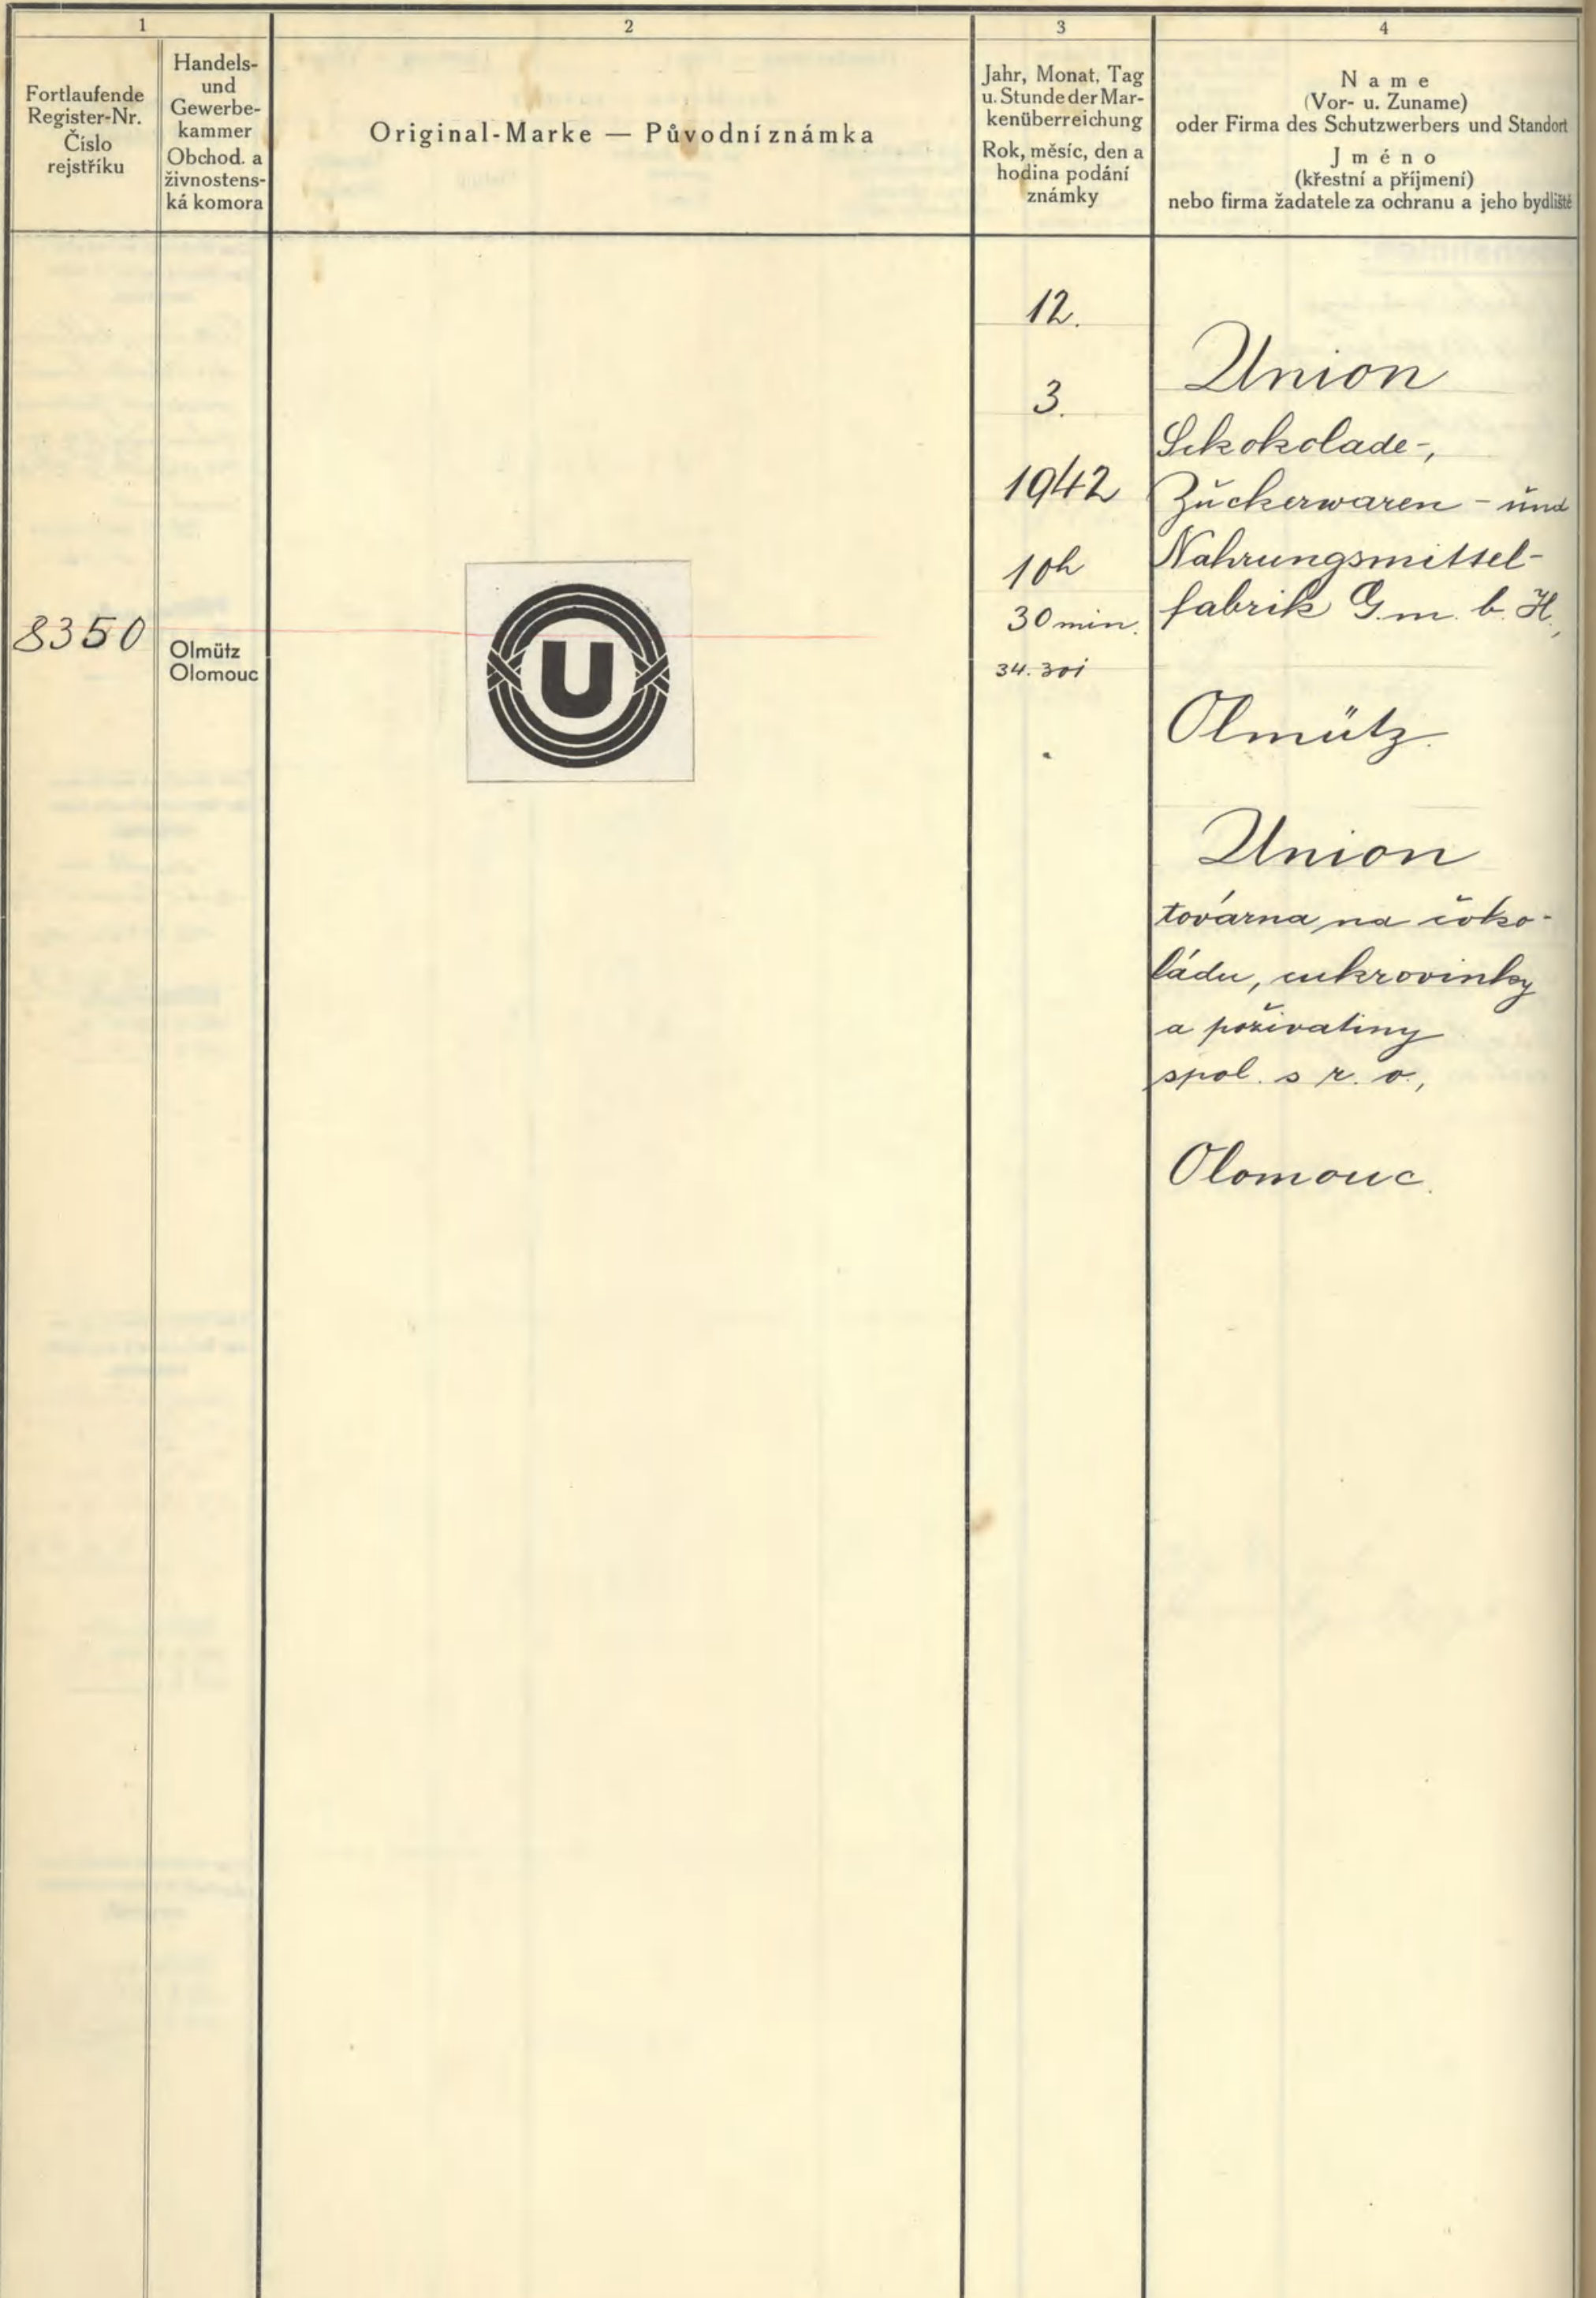 1
2
3
4
Fortlaufende
Register-Nr.
Číslo
rejstříku
Handels-
und
Gewerbe-
kammer
Obchod. a
živnostens-
ká komora
Original-Marke — Původní známka
Jahr, Monat, Tag
u. Stunde der Mar-
kenüberreichung
Rok, měsíc, den a
hodina podání
známky
Name
(Vor- u. Zuname)
oder Firma des Schutzwerbers und Standort
Jméno
(křestní a příjmení)
nebo firma žadatele za ochranu a jeho bydliště
8350
Olmütz
Olomouc
U
12.
3.
1942
10h
30 min.
Union
Schokolade-,
Zuckerwaren - und
Nahrungsmittel-
fabrik G.m. b. H.,
Olmütz.
Union
továrna na čoko-
ládu, cukrovinky
a poživatiny
spol. s r. o.,
Olomouc.